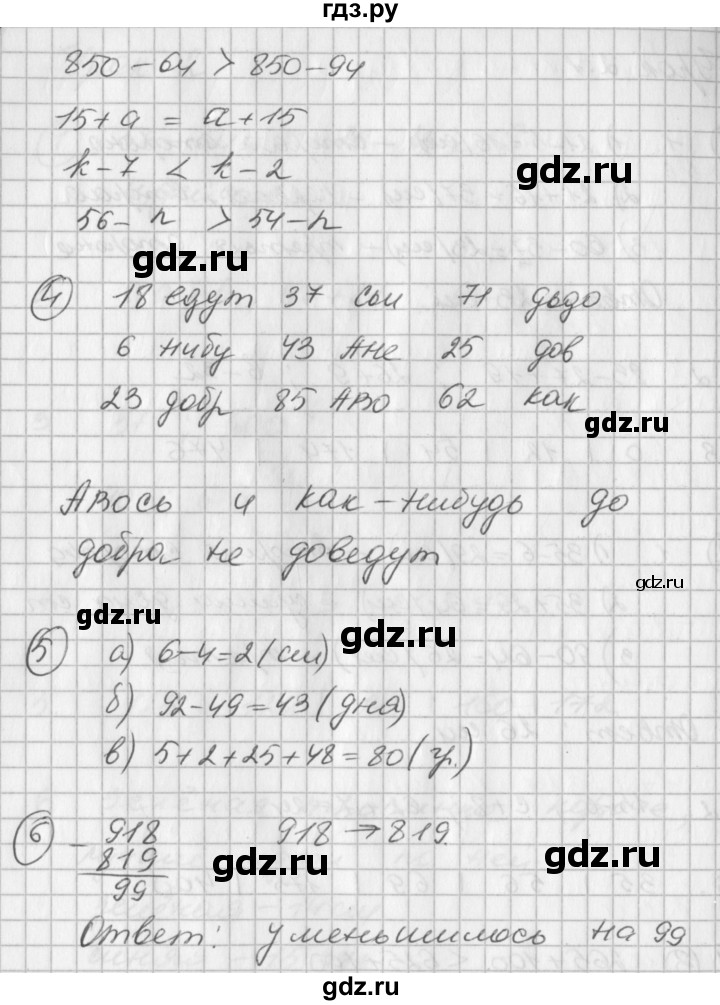 гдз.ру
850 - 64 > 850 - 94
15 + a = a + 15
k - 7 < k - 2
gdz.ru
56 - n > 54 - n
gdz.ru
④ 18 едут 37 сьи 71 дьдо
6 нибу 43 Ане 25 дов
23 добр 85 АВО 62 как
gdz.ru
gdz.ru
АВОСЬ и как-нибудь до
добра не доведут
gdz.ru
gdz.ru
gdz.ru
⑤ а) 6-4=2 (см)
б) 92-49=43 (дня)
в) 5+2+25+48=80 (гр.)
⑥ - 918 918 → 819.
819
99
gdz.ru
gdz.ru
Ответ: уменьшилось на 99
gdz.ru
gdz.ru
gdz.ru